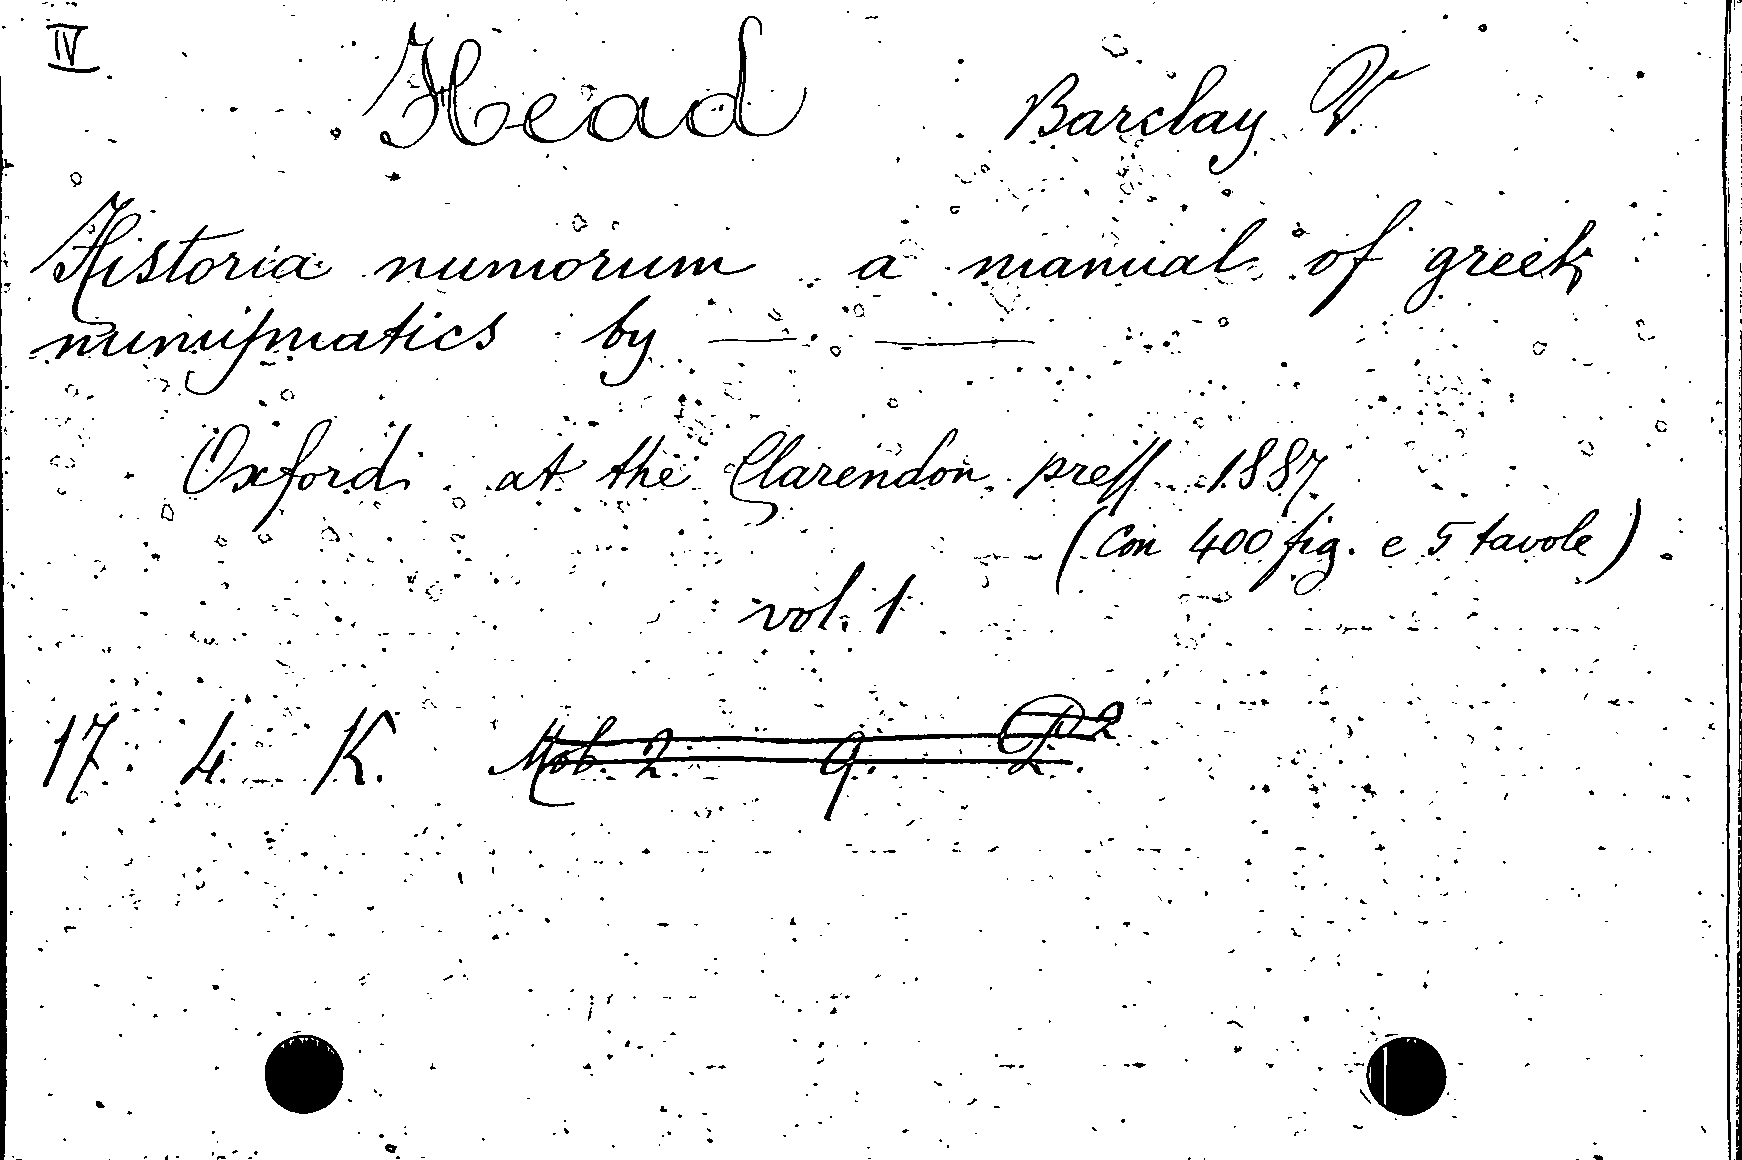 IV
Head Barclay V.
Historia numorum a manual of greek
numiſmatics by — —
Oxford at the Clarendon preſſ 1887
(Con 400 fig. e 5 tavole)
vol. 1
17. 4. K. Mob. 2. 9.